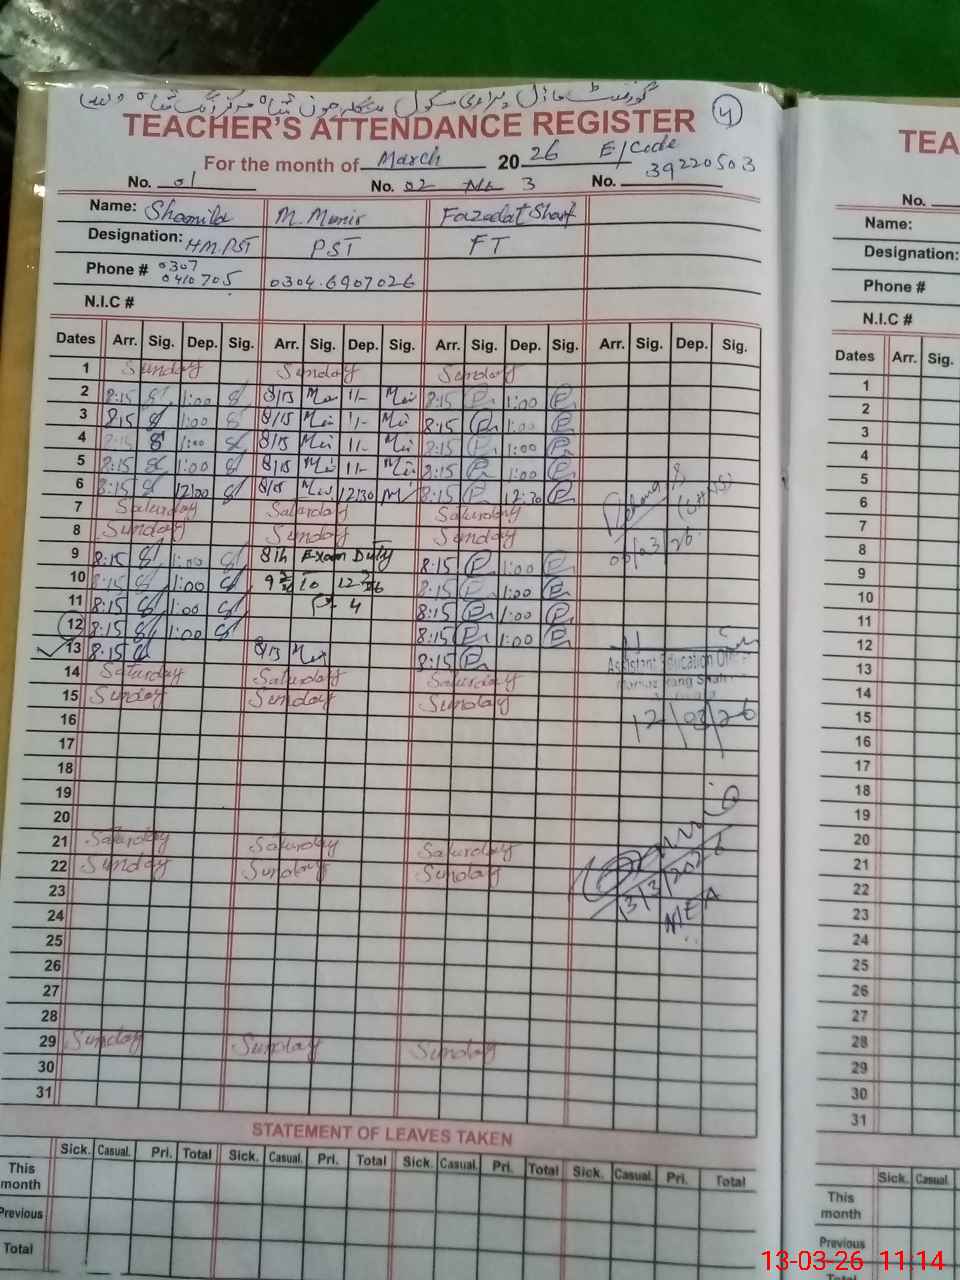 گورنمنٹ ماڈل پرائمری سکول
TEACHER'S ATTENDANCE REGISTER 4
For the month of March 2026 E/Code
39220503
No. 01 No. 02 3 No.
Name: Shamila M. Munir
Designation: HM.PST PST FT
Phone # 0307
0410705 0304.6907026
N.I.C #
Dates Arr. Sig. Dep. Sig. Arr. Sig. Dep. Sig. Arr. Sig. Dep. Sig. Arr. Sig. Dep. Sig.
1 Sunday Sunday Sunday
2 8:15 1:00 8/15 1/- 8:15 1:00
3 8:15 1:00 8/15 1/- 8:15 1:00
4 8:15 1:00 8/15 1/- 8:15 1:00
5 8:15 1:00 8/15 1/- 8:15 1:00
6 8:15 12:00 8/15 12:30 8:15 12:30
7 Saturday Saturday Saturday
8 Sunday Sunday Sunday
06/03/26
9 8:15 1:00 8th Exam Duty 8:15 1:00
10 8:15 1:00 8:15 1:00
11 8:15 1:00 8:15 1:00
12 8:15 1:00 8:15 1:00
13 8:15 8/15 8:15
Assistant Education Officer
14 Saturday Saturday Saturday
15 Sunday Sunday Sunday
12/03/26
16
17
18
19
20
21 Saturday Saturday Saturday
22 Sunday Sunday Sunday
13/3/2026
23
24
25
26
27
28
29 Sunday Sunday Sunday
30
31
STATEMENT OF LEAVES TAKEN
Sick. Casual. Pri. Total Sick. Casual. Pri. Total Sick. Casual. Pri. Total Sick. Casual. Pri. Total
This month
Previous
Total
TEA
No.
Name:
Designation:
Phone #
N.I.C #
Dates Arr. Sig.
1
2
3
4
5
6
7
8
9
10
11
12
13
14
15
16
17
18
19
20
21
22
23
24
25
26
27
28
29
30
31
Sick. Casual
This month
Previous
Total
13-03-26 11:14